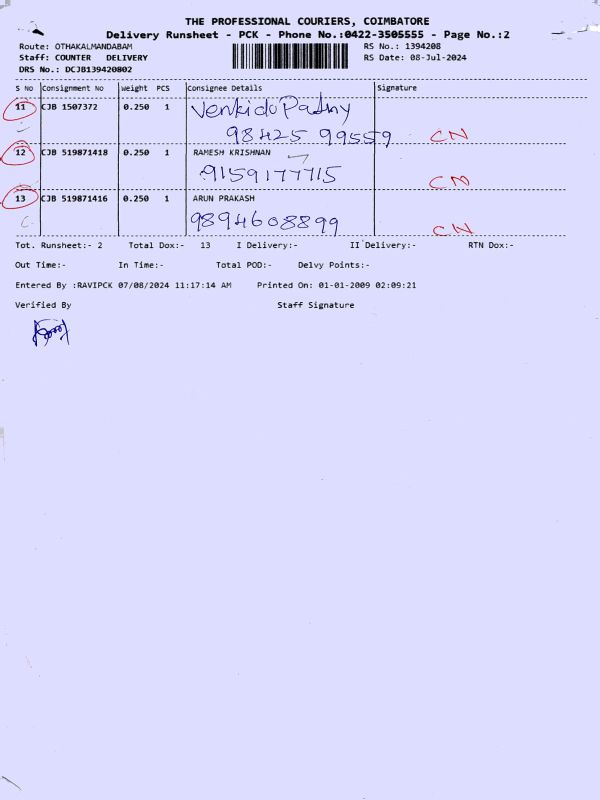 THE PROFESSIONAL COURIERS, COIMBATORE
Delivery Runsheet - PCK - Phone No.:0422-3505555 - Page No.:2
Route: OTHAKALMANDABAM RS No.: 1394208
Staff: COUNTER DELIVERY RS Date: 08-Jul-2024
DRS No.: DCJB139420802
S No Consignment No Weight PCS Consignee Details Signature
11 CJB 1507372 0.250 1
98425 99559 CN
12 CJB 519871418 0.250 1 RAMESH KRISHNAN
9159177715 CN
13 CJB 519871416 0.250 1 ARUN PRAKASH
9894608899 CN
Tot. Runsheet:- 2 Total Dox:- 13 I Delivery:- II Delivery:- RTN Dox:-
Out Time:- In Time:- Total POD:- Delvy Points:-
Entered By :RAVIPCK 07/08/2024 11:17:14 AM Printed On: 01-01-2009 02:09:21
Verified By Staff Signature